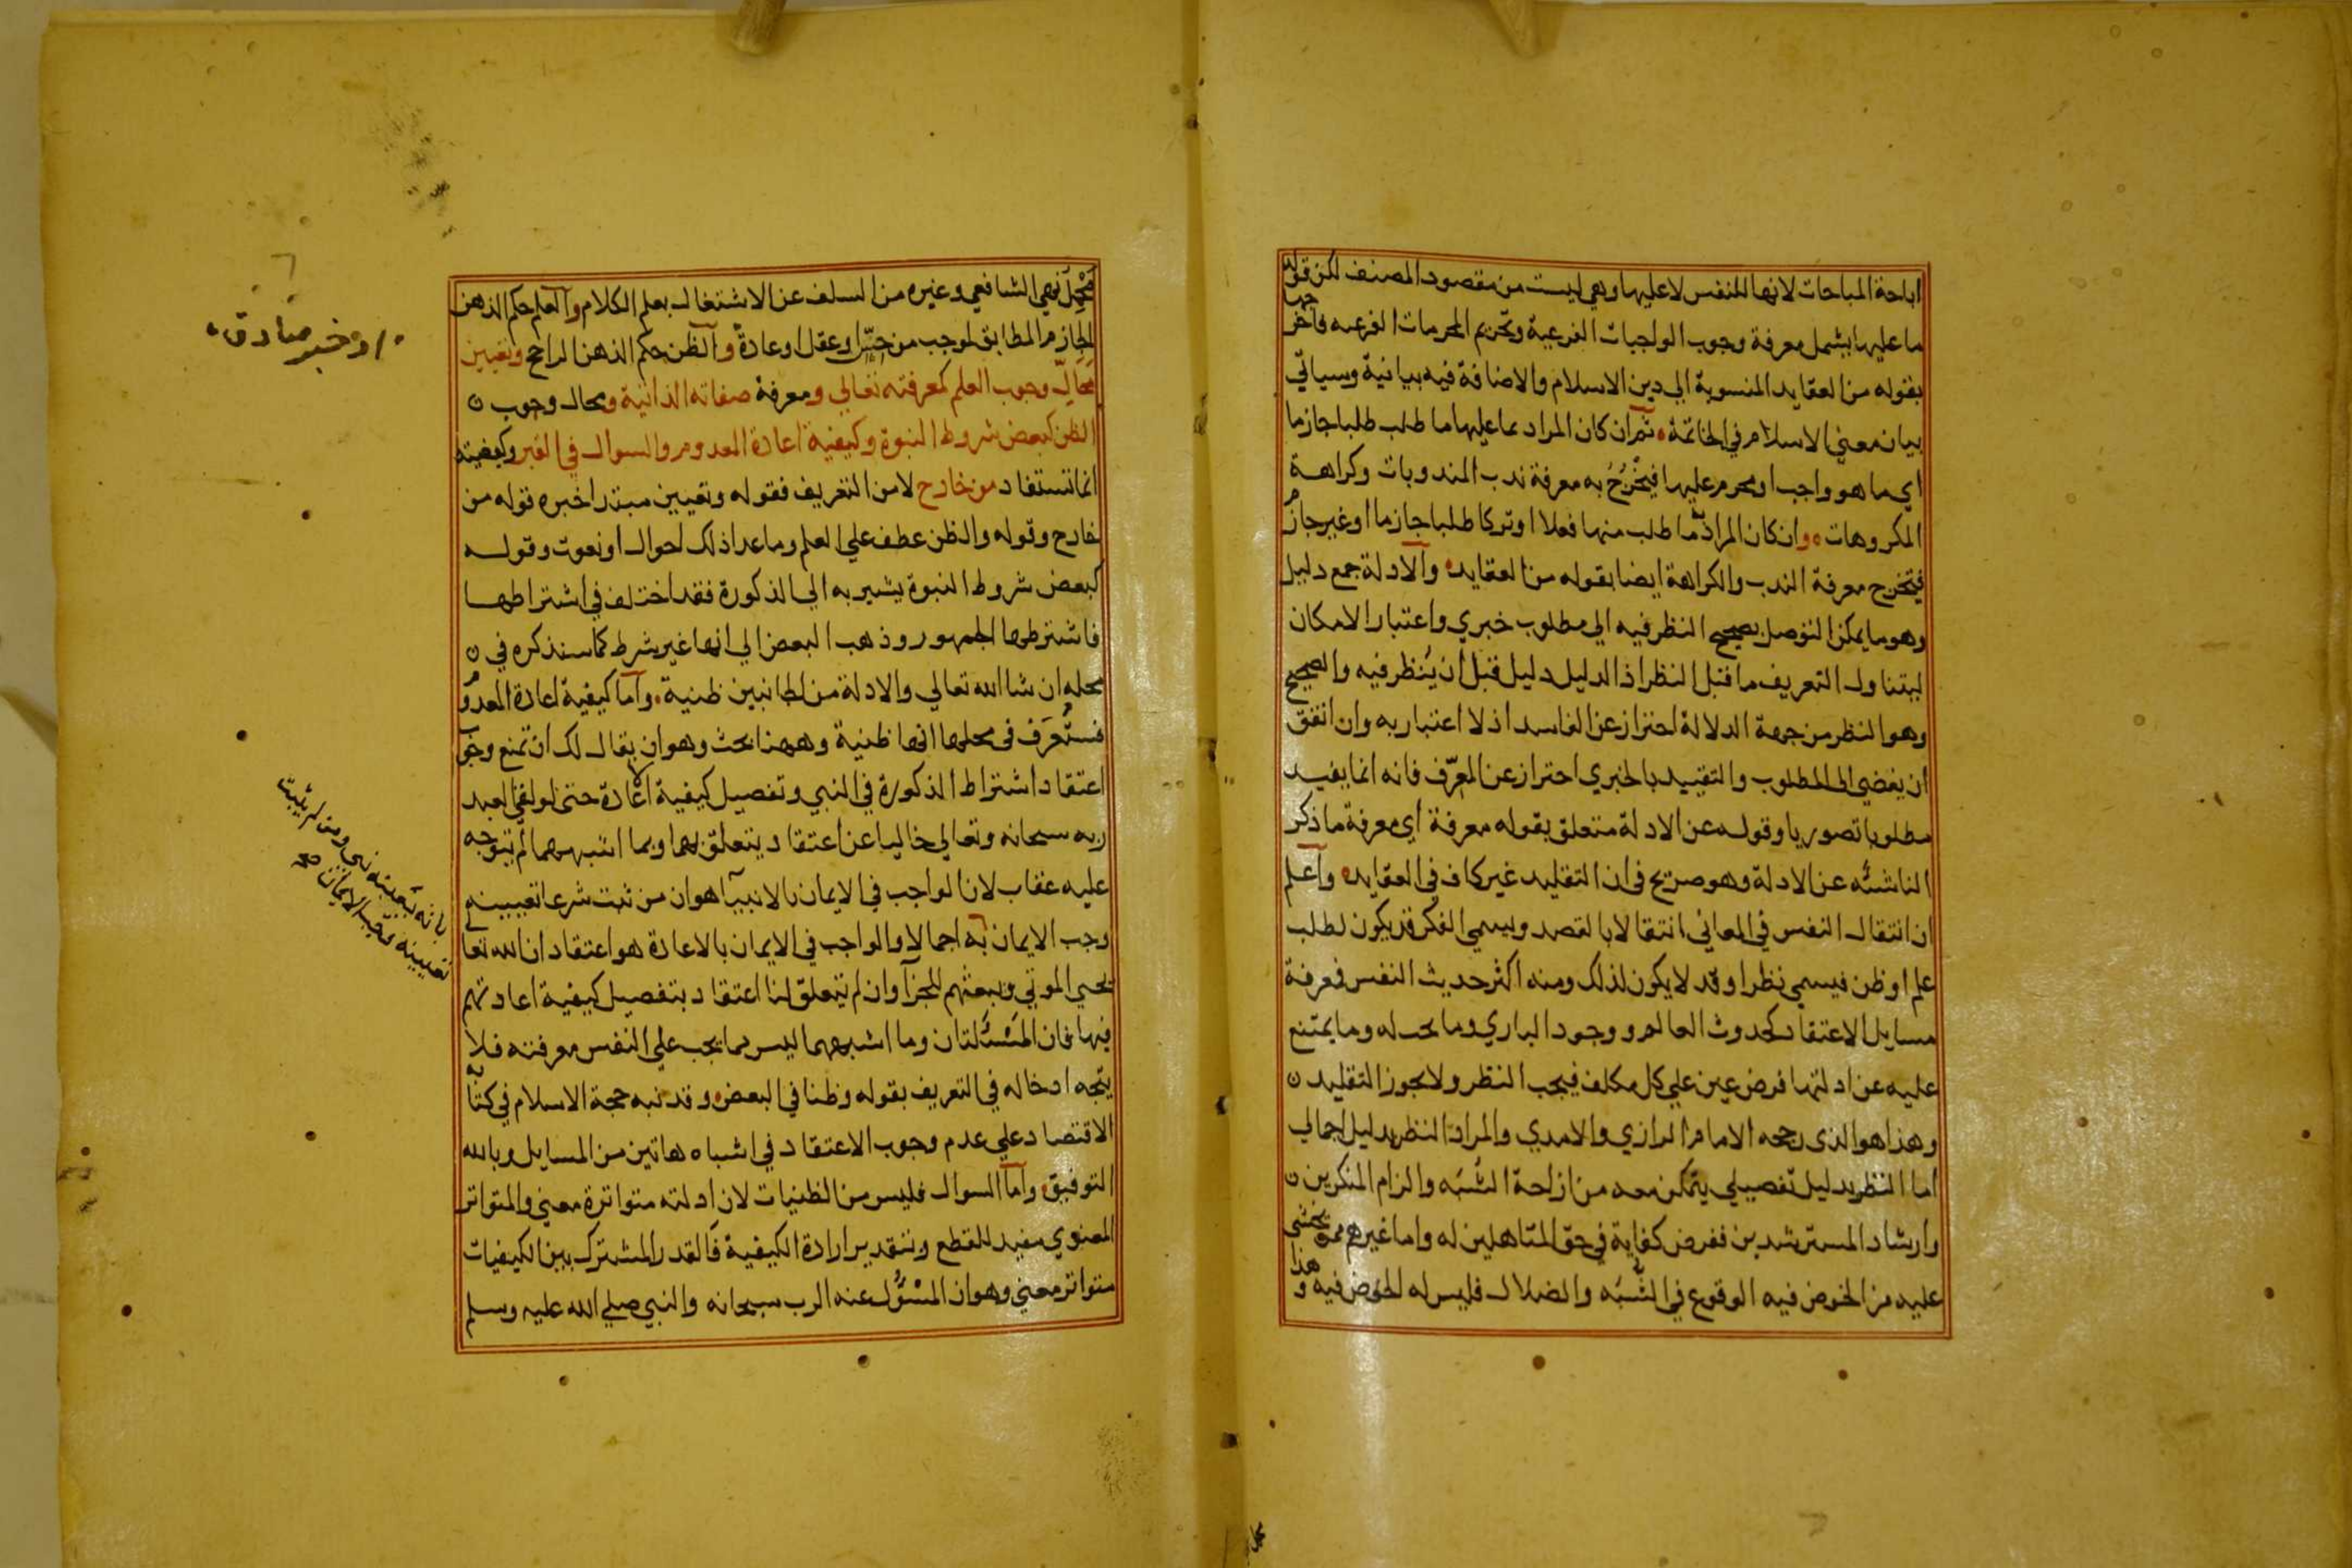 اباحة المباحات لانها للنفس لا عليها وهي ليست من مقصود المصنف لكن قوله
ما عليها يشمل معرفة وجوب الواجبات الفرعية وتحريم المحرمات الفرعيه فاخرجها
بقوله من العقايد المنسوبة الي دين الاسلام والاضافة فيه بيانية وسياتي
بيان معني الاسلام في الخاتمة ثم ان كان المراد بما عليها ما طلب طلبا جازما
اي ما هو واجب او محرم عليها فيخرج به معرفة ندب المندوبات وكراهة
المكروهات وان كان المراد ما طلب منها فعلا او تركا طلبا جازما او غير جازم
فتخرج معرفة الندب والكراهة ايضا بقوله من العقايد والادلة جمع دليل
وهو ما يمكن التوصل بصحيح النظر فيه الي مطلوب خبري واعتبار الامكان
ليتناول التعريف ما قبل النظر اذ الدليل دليل قبل ان ينظر فيه والصحيح
وهو النظر من جهة الدلالة احتراز عن الفاسد اذ لا اعتبار به وان اتفق
ان يفضي الى المطلوب والتقييد بالخبري احتراز عن المعرّف فانه انما يفيد
مطلوبا تصوريا وقوله عن الادلة متعلق بقوله معرفة اي معرفة ما ذكر
الناشئه عن الادلة وهو صريح في ان التقليد غير كاف في العقايد واعلم
ان انتقال النفس في المعاني انتقالا بالقصد ويسمي الفكر قد يكون لطلب
علم او ظن فيسمي نظرا وقد لا يكون لذلك ومنه اكثر حديث النفس فمعرفة
مسايل الاعتقاد كحدوث العالم ووجود الباري وما يجب له وما يمتنع
عليه عن ادلتها فرض عين علي كل مكلف فيجب النظر ولا يجوز التقليد
وهذا هو الذى رجحه الامام الرازي والامدي والمراد النظر بدليل اجمالي
اما النظر بدليل تفصيلي يتمكن معه من ازاحة الشُّبَه والزام المنكرين
وارشاد المسترشدين ففرض كفاية في حق المتاهلين له واما غيرهم ممن يخشى
عليه من الخوض فيه الوقوع في الشُّبَه والضلال فليس له الخوض فيه وهذا
مَحْمِل نهي الشافعي وغيره من السلف عن الاشتغال بعلم الكلام والعلم حكم الذهن
الجازم المطابق لموجب من حِسّ او عقل او عادة والظن حكم الذهن الراجح وتعيين
مَحَالّ وجوب العلم كمعرفته تعالي ومعرفة صفاته الذاتية ومحال وجوب
الظن كبعض شروط النبوة وكيفية اعادة المعدوم والسوال في القبر وكيفيته
انما تستفاد من خارج لا من التعريف فقوله وتعيين مبتدا خبره قوله من
خارج وقوله والظن عطف علي العلم وما عدا ذلك احوال او نعوت وقوله
كبعض شروط النبوة يشير به الي الذكورة فقد اختلف في اشتراطها
فاشترطها الجمهور وذهب البعض الي انها غير شرط كما سنذكره في
محله ان شا الله تعالي والادلة من الجانبين ظنية واما كيفية اعادة المعدوم
فستُعرَف في محلها انها ظنية وههنا بحث وهو ان يقال لك ان تمنع وجوب
اعتقاد اشتراط الذكورة في النبي وتفصيل كيفية الاعادة حتى لو لقي العبد
ربه سبحانه وتعالي خاليا عن اعتقاد يتعلق بهما وبما اشبههما لم يتوجه
عليه عقاب لان الواجب في الايمان بالانبيآ هو ان من ثبت شرعا تعيينه
وجب الايمان به اجمالا والواجب في الايمان بالاعادة هو اعتقاد ان الله تعا
يحيي الموتي ويبعثهم للجزآ وان لم يتعلق لنا اعتقاد بتفصيل كيفية اعادتهم
فيها فان المَسْئَلتان وما اشبههما ليس مما يجب علي النفس معرفته فلا
يتجه ادخاله في التعريف بقوله وظنا في البعض وقد نبه حجة الاسلام في كتاب
الاقتصاد علي عدم وجوب الاعتقاد في اشباه هاتين من المسايل وبالله
التوفيق واما السوال فليس من الظنيات لان ادلته متواترة معني والمتواتر
المعنوي مفيد للقطع وبتقدير ارادة الكيفية فالقدر المشترك بين الكيفيات
متواتر معني وهو ان المسْؤُل عنه الرب سبحانه والنبي صلي الله عليه وسلم
او خبر صادق
ومن لم يثبت
تعيينه الايمان